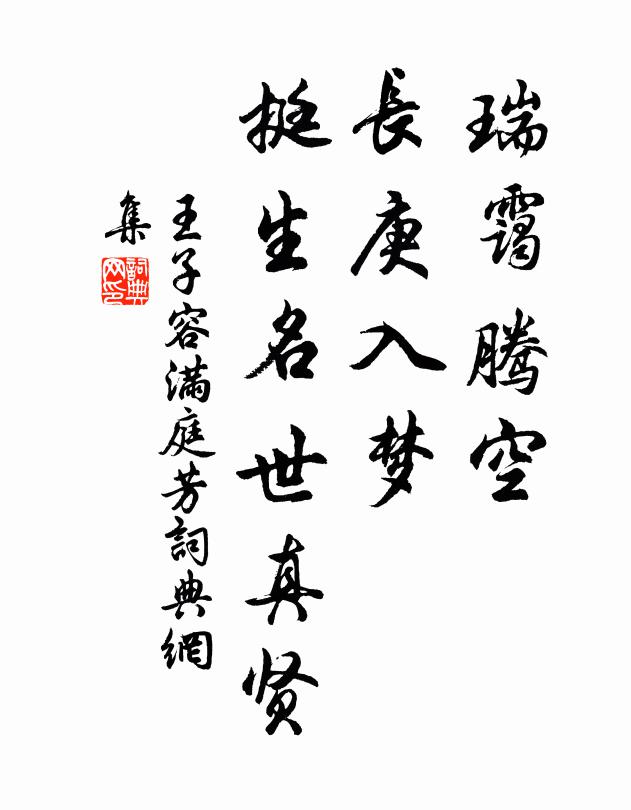 瑞霭腾空
長庚入梦
挺生名世真贤
王子容滿庭芳詞典網
集
詞典网印